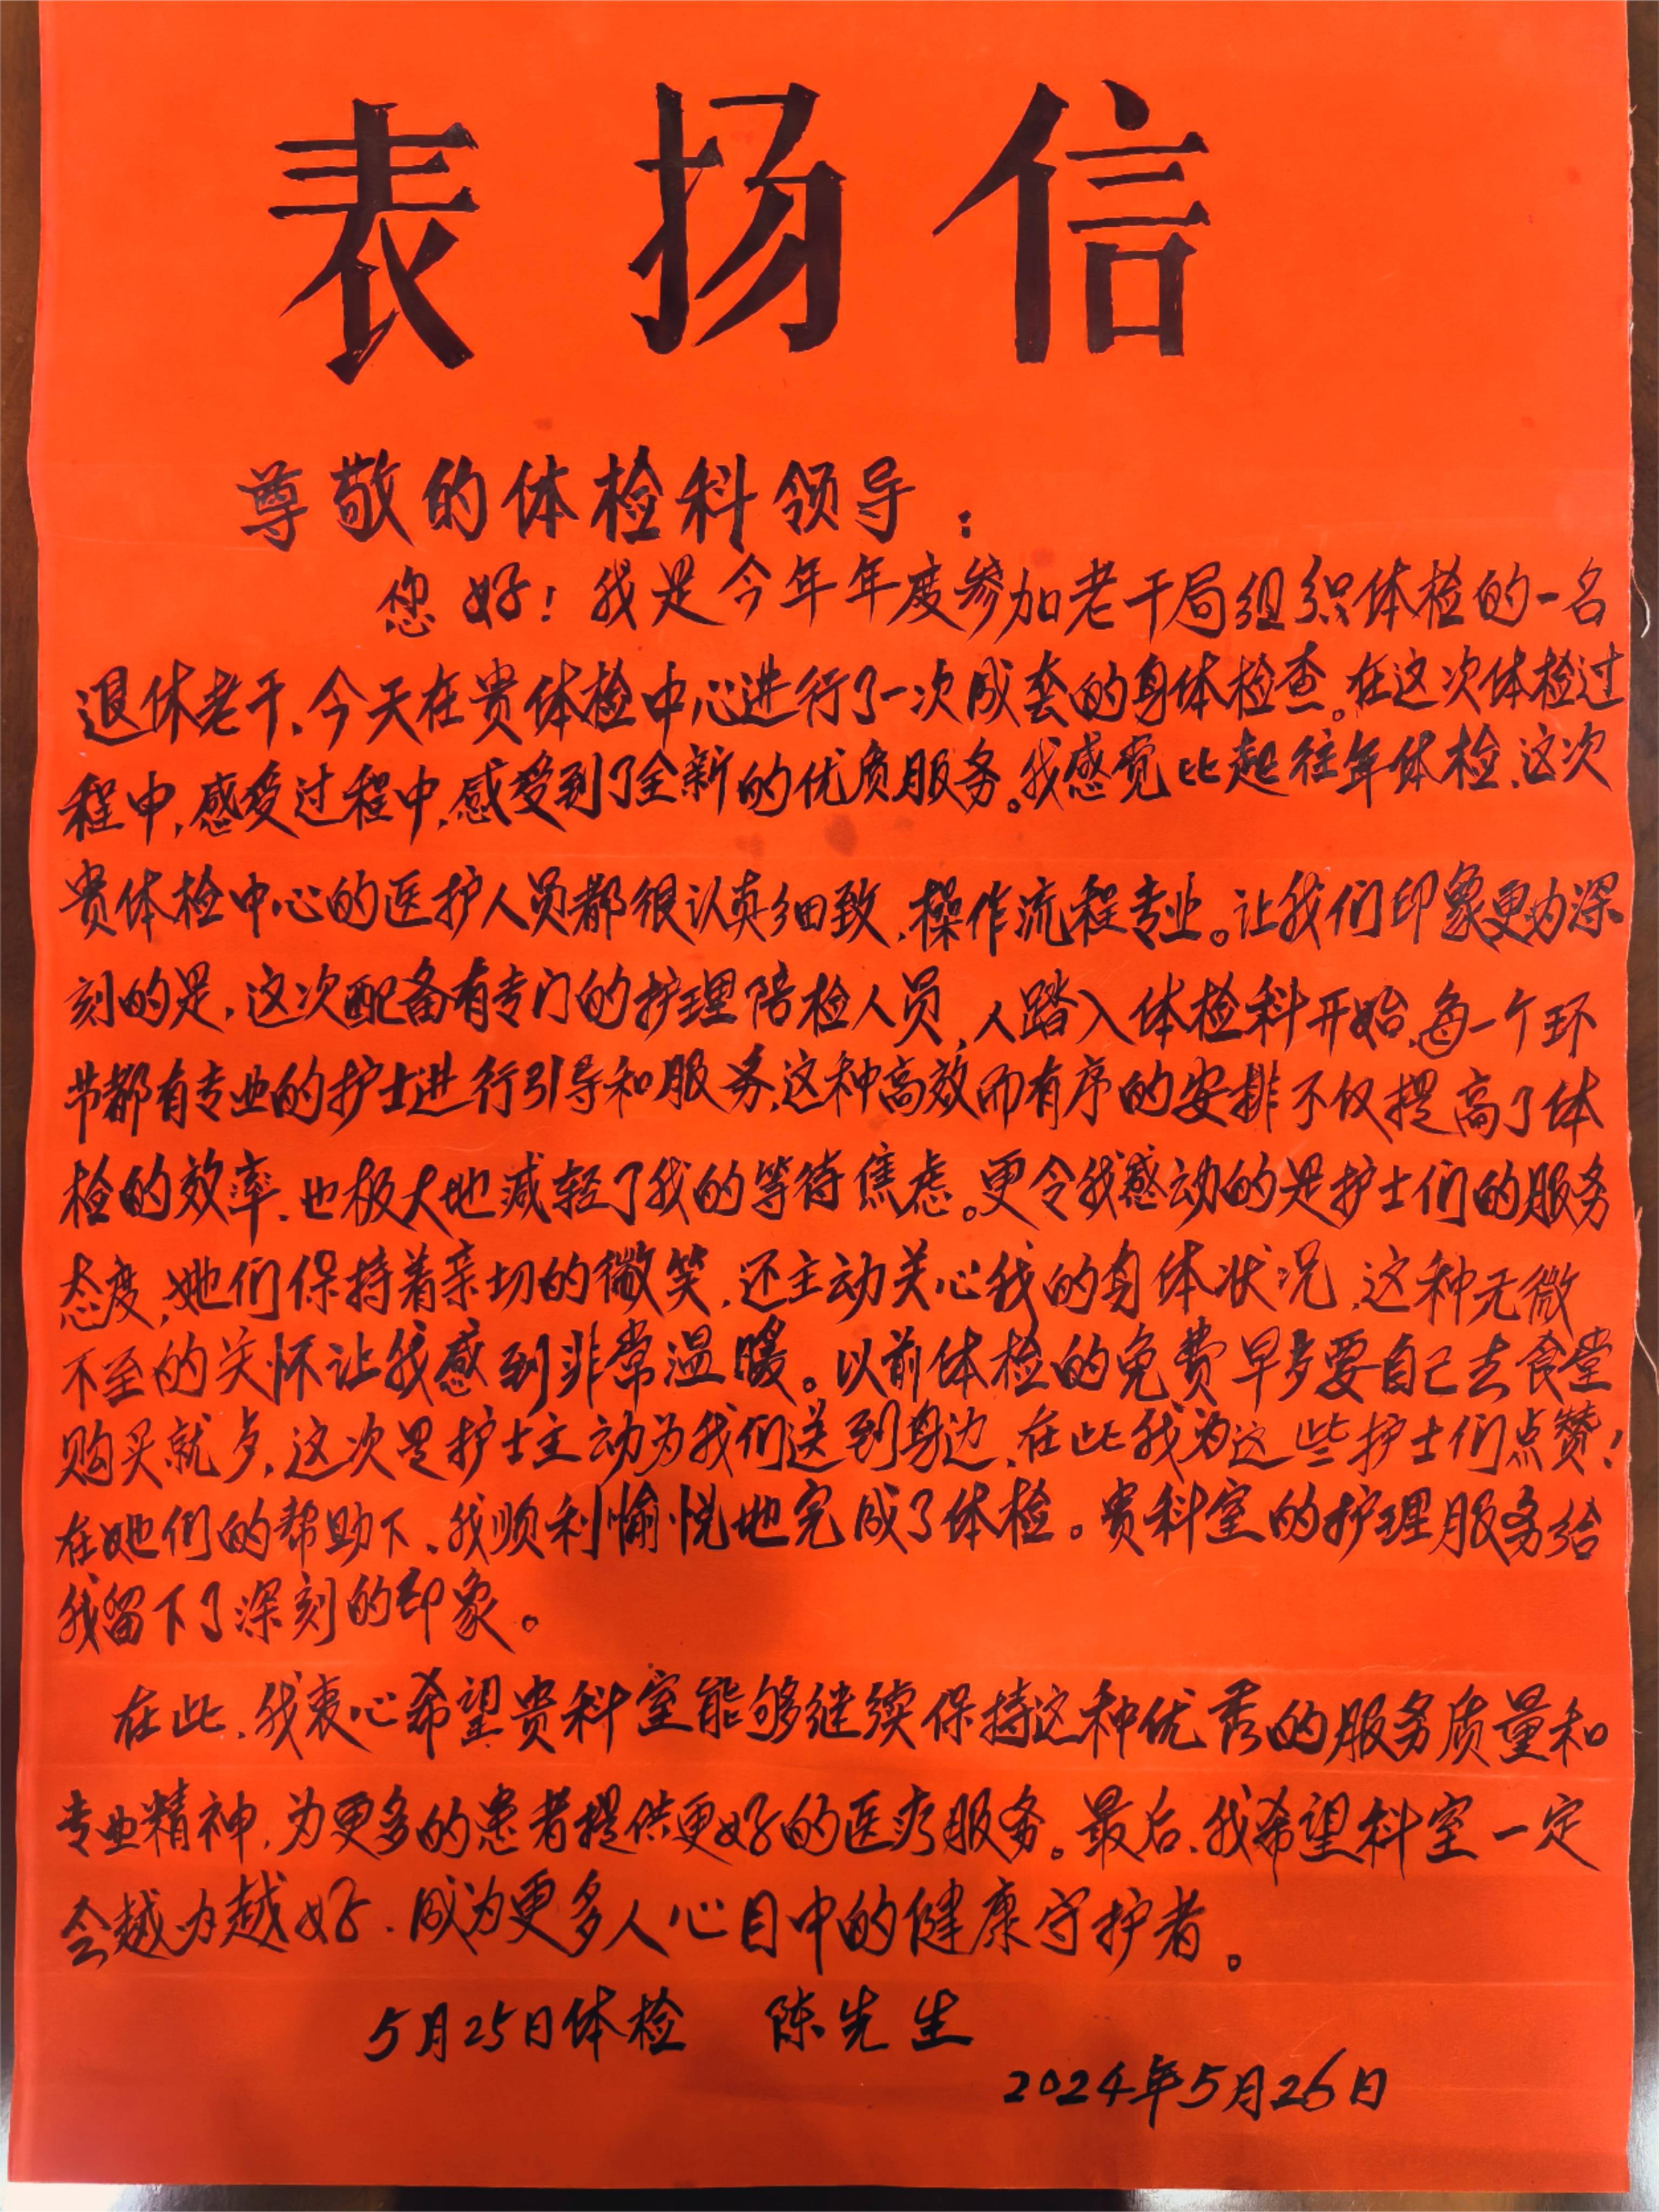 表扬信
尊敬的体检科领导：
您好！我是今年年度参加老干局组织体检的一名
退休老干，今天在贵体检中心进行了一次成套的身体检查。在这次体检过
程中，感受过程中，感受到了全新的优质服务。我感觉比起往年体检，这次
贵体检中心的医护人员都很认真细致，操作流程专业。让我们印象更为深
刻的是，这次配备有专门的护理陪检人员，人踏入体检科开始，每一个环
节都有专业的护士进行引导和服务，这种高效而有序的安排不仅提高了体
检的效率，也极大地减轻了我的等待焦虑。更令我感动的是护士们的服务
态度，她们保持着亲切的微笑，还主动关心我的身体状况，这种无微
不至的关怀让我感到非常温暖。以前体检的免费早歺要自己去食堂
购买就歺，这次是护士主动为我们送到身边，在此我为这些护士们点赞！
在她们的帮助下，我顺利愉悦地完成了体检。贵科室的护理服务给
我留下了深刻的印象。
在此，我衷心希望贵科室能够继续保持这种优秀的服务质量和
专业精神，为更多的患者提供更好的医疗服务。最后，我希望科室一定
会越办越好，成为更多人心目中的健康守护者。
5月25日体检 陈先生
2024年5月26日